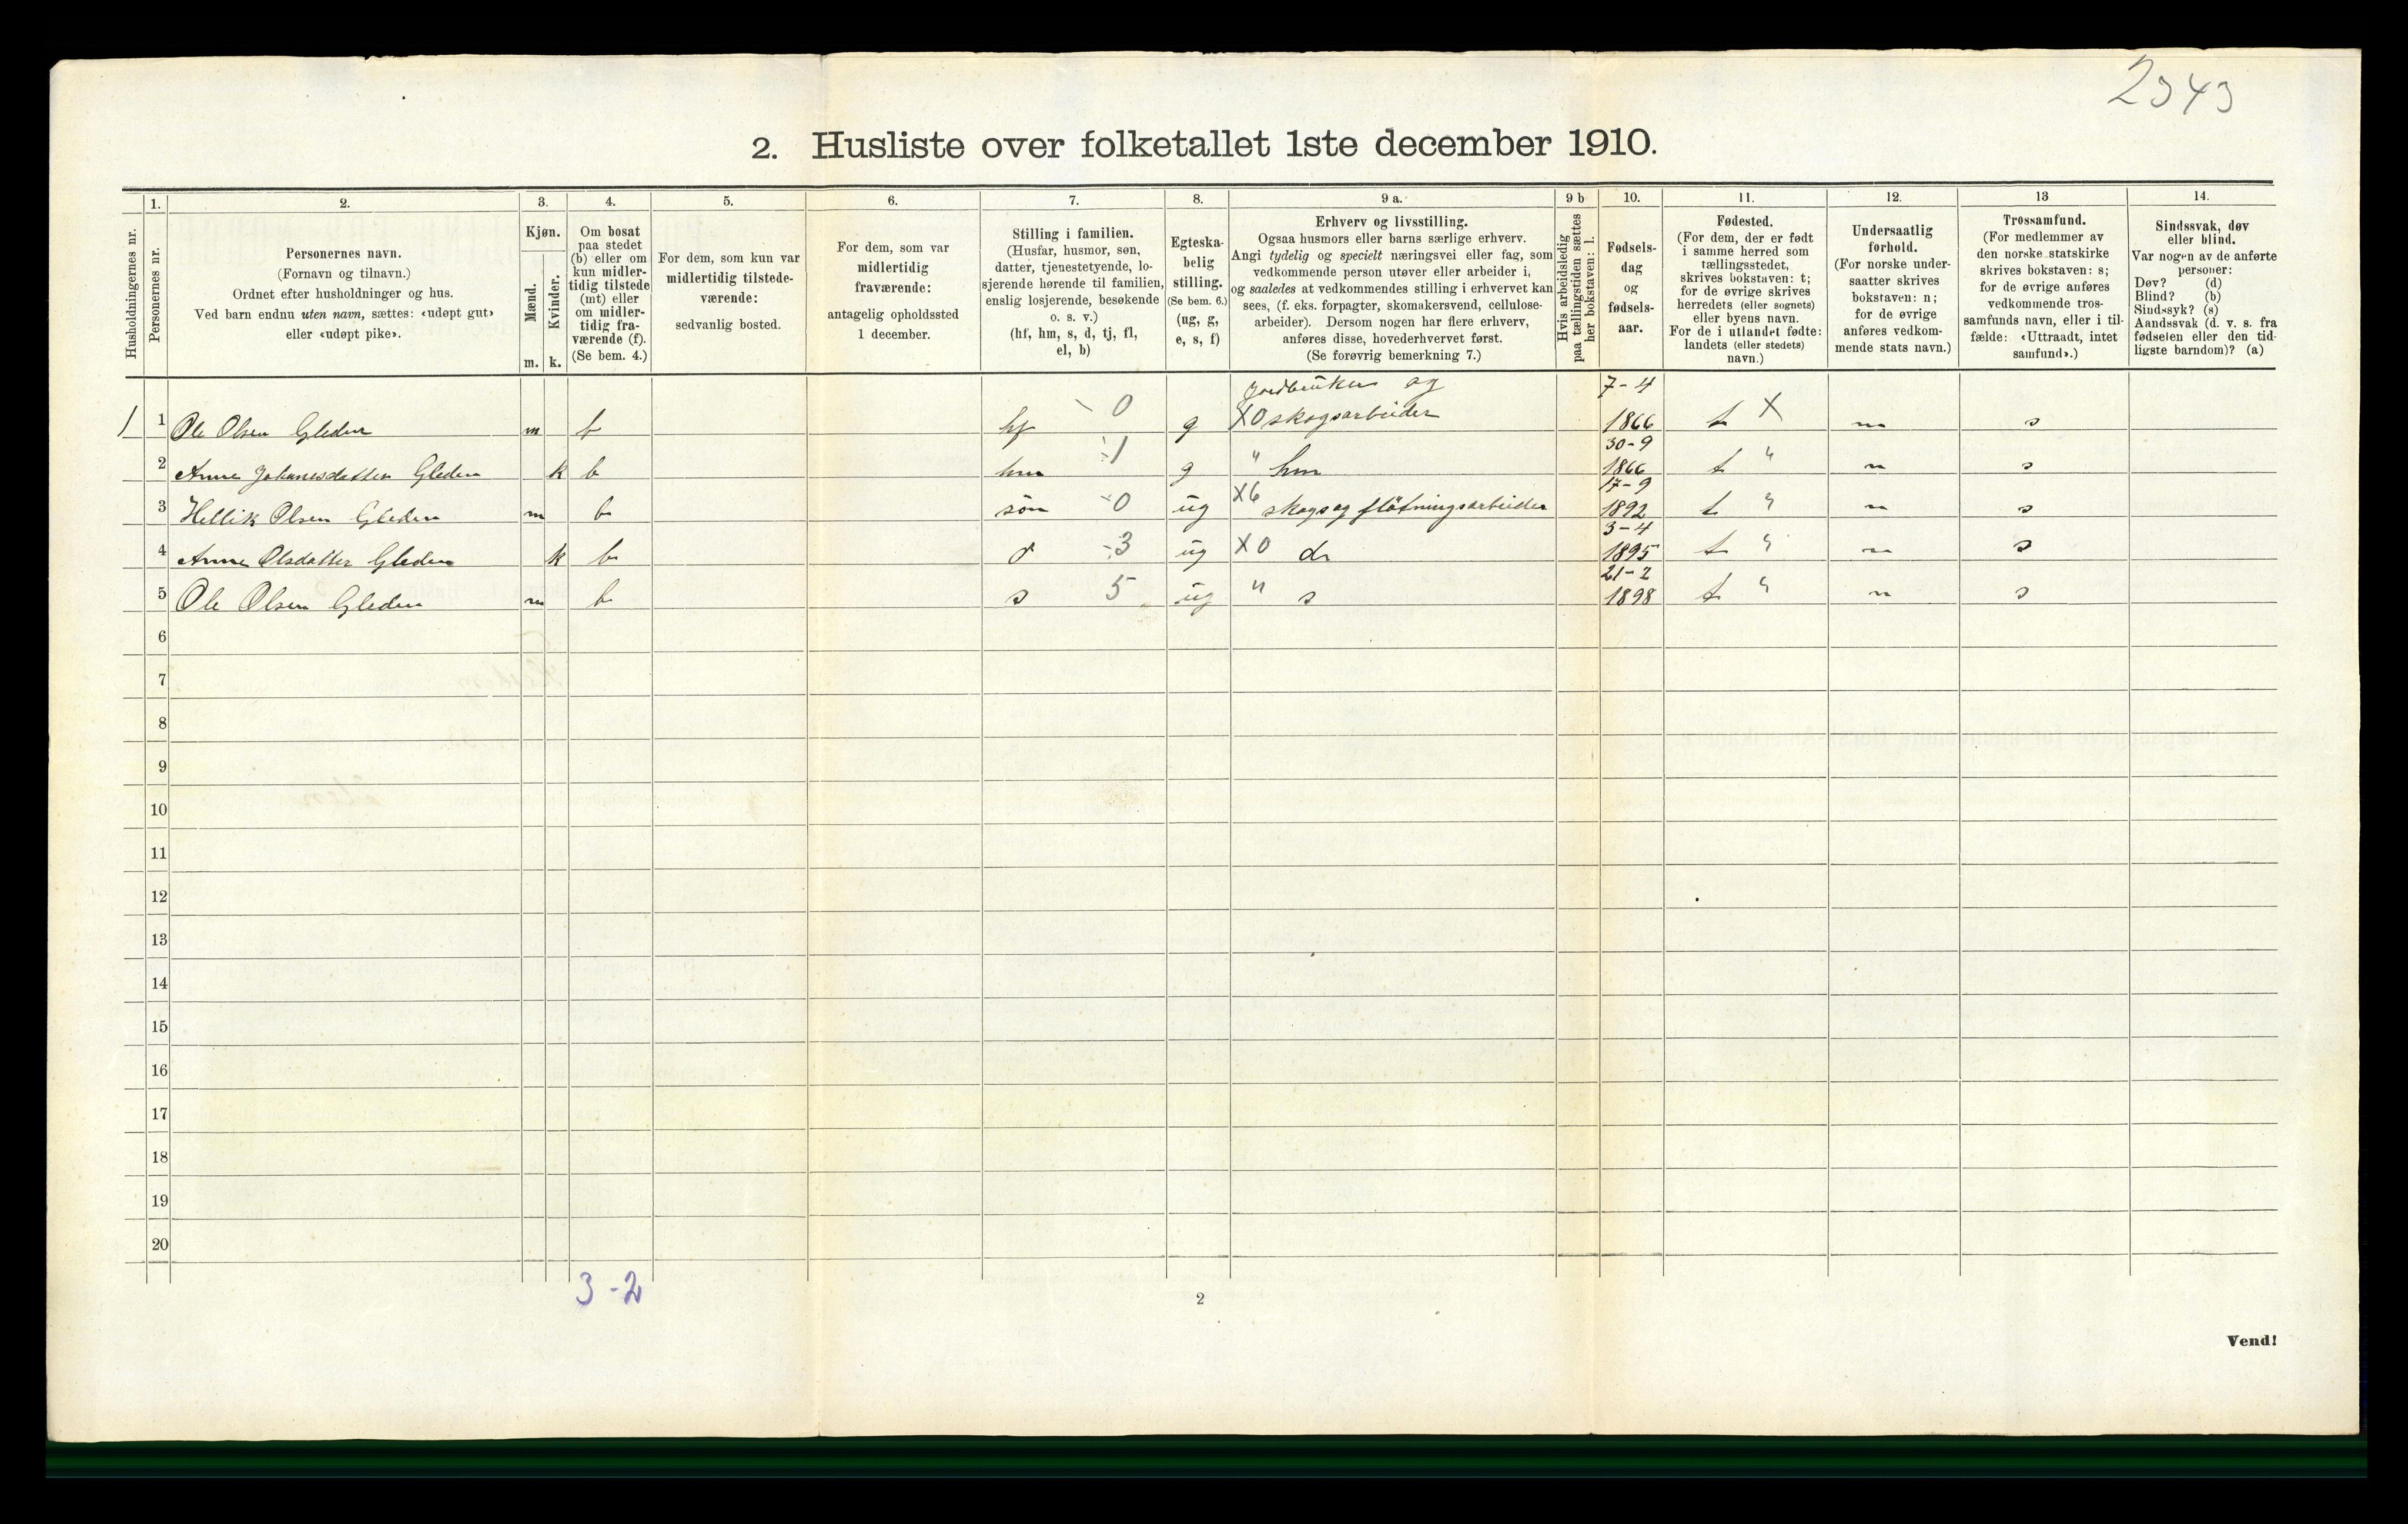 2343
2. Husliste over folketallet 1ste december 1910.
Husholdningernes nr.
1.
Personernes nr.
2.
Personernes navn.
(Fornavn og tilnavn.)
Ordnet efter husholdninger og hus.
Ved barn endnu uten navn, sættes: «udøpt gut»
eller «udøpt pike».
3.
Kjøn.
Mænd.
Kvinder.
m. k.
4.
Om bosat
paa stedet
(b) eller om
kun midler-
tidig tilstede
(mt) eller
om midler-
tidig fra-
værende (f).
(Se bem. 4.)
5.
For dem, som kun var
midlertidig tilstede-
værende:
sedvanlig bosted.
6.
For dem, som var
midlertidig
fraværende:
antagelig opholdssted
1 december.
7.
Stilling i familien.
(Husfar, husmor, søn,
datter, tjenestetyende, lo-
sjerende hørende til familien,
enslig losjerende, besøkende
o. s. v.)
(hf, hm, s, d, tj, fl,
el, b)
8.
Egteska-
belig
stilling.
(Se bem. 6.)
(ug, g,
e, s, f)
9 a.
Erhverv og livsstilling.
Ogsaa husmors eller barns særlige erhverv.
Angi tydelig og specielt næringsvei eller fag, som
vedkommende person utøver eller arbeider i,
og saaledes at vedkommendes stilling i erhvervet kan
sees, (f. eks. forpagter, skomakersvend, cellulose-
arbeider). Dersom nogen har flere erhverv,
anføres disse, hovederhvervet først.
(Se forøvrig bemerkning 7.)
9 b
Hvis arbeidsledig
paa tællingstiden sættes
her bokstaven: l.
10.
Fødsels-
dag
og
fødsels-
aar.
11.
Fødested.
(For dem, der er født
i samme herred som
tællingsstedet,
skrives bokstaven: t;
for de øvrige skrives
herredets (eller sognets)
eller byens navn.
For de i utlandet fødte:
landets (eller stedets)
navn.)
12.
Undersaatlig
forhold.
(For norske under-
saatter skrives
bokstaven: n;
for de øvrige
anføres vedkom-
mende stats navn.)
13
Trossamfund.
(For medlemmer av
den norske statskirke
skrives bokstaven: s;
for de øvrige anføres
vedkommende tros-
samfunds navn, eller i til-
fælde: «Uttraadt, intet
samfund».)
14.
Sindssvak, døv
eller blind.
Var nogen av de anførte
personer:
Døv? (d)
Blind? (b)
Sindssyk? (s)
Aandssvak (d. v. s. fra
fødselen eller den tid-
ligste barndom)? (a)
Jordbruker og 7-4
1 1 Ole Olsen Gleden m b hf 0 g X0 skogsarbeider 1866 t X n s
30-9
2 Anne Johanesdatter Gleden k b hm 1 g " hm 1866 t " n s
17-9
3 Hellik Olsen Gleden m b søn 0 ug X6 skogs og fløtningsarbeider 1892 t " n s
3-4
4 Anne Olsdatter Gleden k b d 3 ug X0 dr 1895 t " n s
21-2
5 Ole Olsen Gleden m b s 5 ug " s 1898 t " n s
6
7
8
9
10
11
12
13
14
15
16
17
18
19
20
3-2
2
Vend!